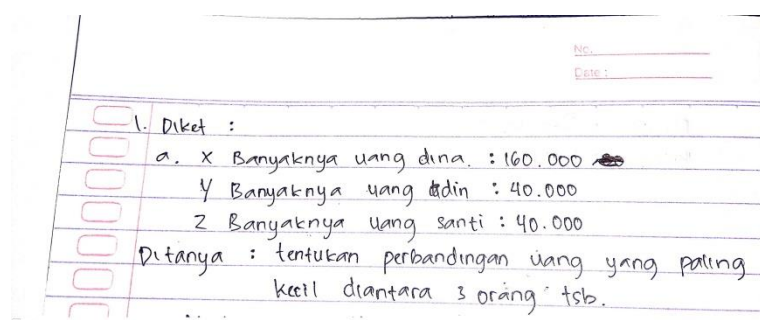 No.
Date :
1. Diket :
a. X Banyaknya uang dina. : 160.000
Y Banyaknya uang udin : 40.000
Z Banyaknya uang santi : 40.000
Ditanya : tentukan perbandingan uang yang paling
kecil diantara 3 orang tsb.